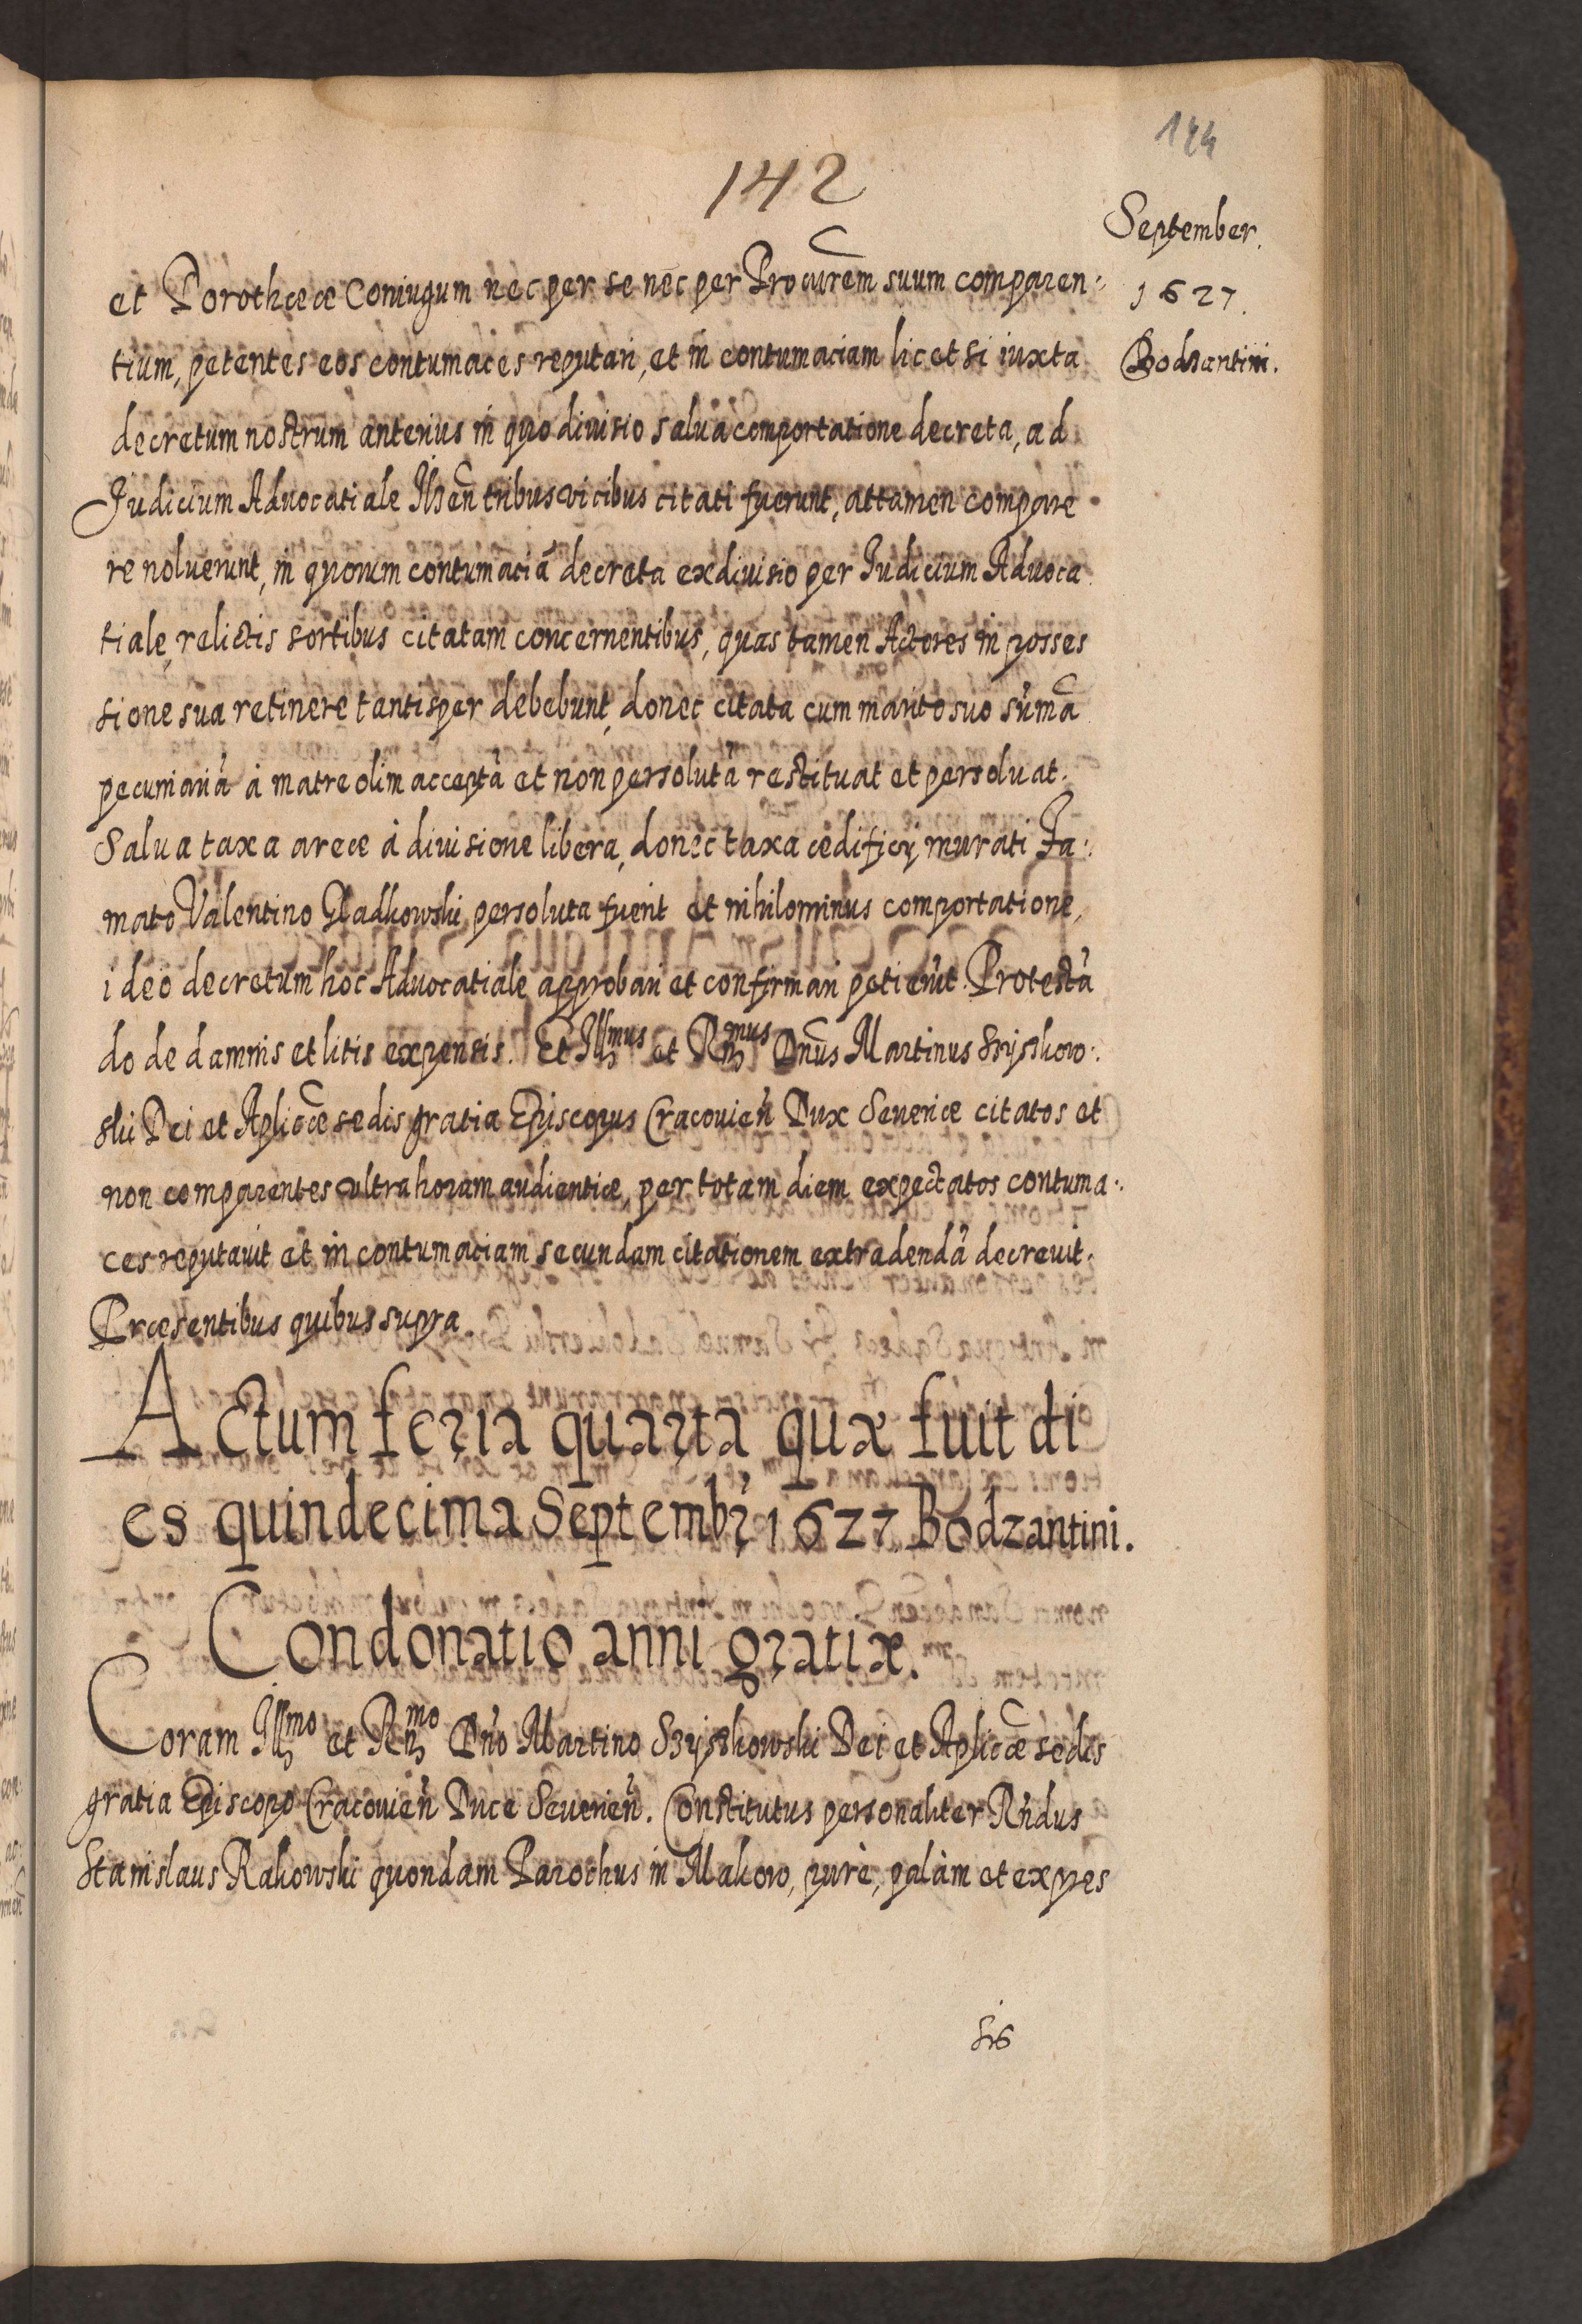 144
142
September.
1627.
Bodzantini.
et Dorotheæ Coniugum nec per se nec per Procurem suum comparen:
tium, petentes eos contumaces reputari, et in contumaciam licet si iuxta
decretum nostrum anterius in quo diuisio salua comportatione decreta, ad
Judicium Aduocatiale tribus vicibus citati fuerunt, attamen compare
re noluerunt, in quorum contumaciã decreta exdiuisio per Judicium Aduoca
tiale, relictis sortibus citatam concernentibus, quas tamen Actores in posses
sione sua retinere tantisper debebunt, donec citata cum marito suo sum̃a
pecuniariã à matre olim acceptã et non persolutã restituat et persoluat.
Salua taxa areæ à diuisione libera, donec taxa ædificij murati Fa:
mato Valentino Gladkowski persoluta fuerit et nihilominus comportatione,
ideo decretum hoc Aduocatiale approbari et confirmari petierũt. Protestã
do de damnis et litis expensis. Et Illmus et Rmus Dnus Martinus Szyszkow:
ski Dei et Aplicæ sedis gratia Episcopus Cracouien̄ Dux Seueriæ citatos et
non comparentes ultra horam audientiæ, per totam diem expectatos contuma:
ces reputauit et in contumaciam secundam citationem extradendã decreuit.
Præsentibus quibus supra
Actum feria quarta quæ fuit di
es quindecima Septembr 1627. Bodzantini.
Condonatio anni gratiæ.
Coram Illmo et Rmo Dño Martino Szyszkowski Dei et Aplicæ sedis
gratia Episcopo Cracouien̄ Duce Seuerien̄. Constitutus personaliter Rñdus
Stanislaus Rakowski quondam Parochus in Makow, purè, palàm et expres
sis